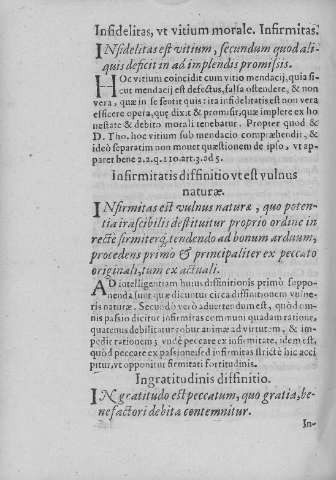 Infidelitas, vt vitium morale. Infirmitas.
INfidelitas est vitium, secundum quod ali-
quis deficit in ad implendis promissis.
HOc vitium coincidit cum vitio mendacij, quia si-
cut mendacij est defectus, falsa ostendere, & non
vera, quæ in se sentit quis: ita infidelitatis est non vera
efficere opera, quę dixit & promisit, quæ implere ex ho
nestate & debito morali tenebatur. Propter quod &
D. Tho. hoc vitium sub mendacio compræhendit, &
ideò separatim non mouet quæstionem de ipso, vt ap-
paret bene 2.2.q.110.art.3.ad 5.
Infirmitatis diffinitio vt est vulnus
naturæ.
INfirmitas est vulnus naturæ, quo poten-
tia irascibilis destituitur proprio ordine in
recte firmiterq́; tendendo ad bonum arduum,
procedens primo & principaliter ex peccato
originali, tum ex actuali.
AD intelligentiam huius diffinitionis primò suppo-
nenda sunt quæ dicuntur circa diffinitionem vulne-
ris naturæ. Secundò verò aduertendum est, quòd om-
nis passio dicitur infirmitas communi quadam ratione,
quatenus debilitatur robur animæ ad virtutem, & im-
pedit rationem; vnde peccare ex infirmitate, idem est,
quòd peccare ex passione: sed infirmitas strictè hic acci
pitur, vt opponitur firmitati fortitudinis.
Ingratitudinis diffinitio.
INgratitudo est peccatum, quo gratia, be-
nefactori debita contemnitur.
In-